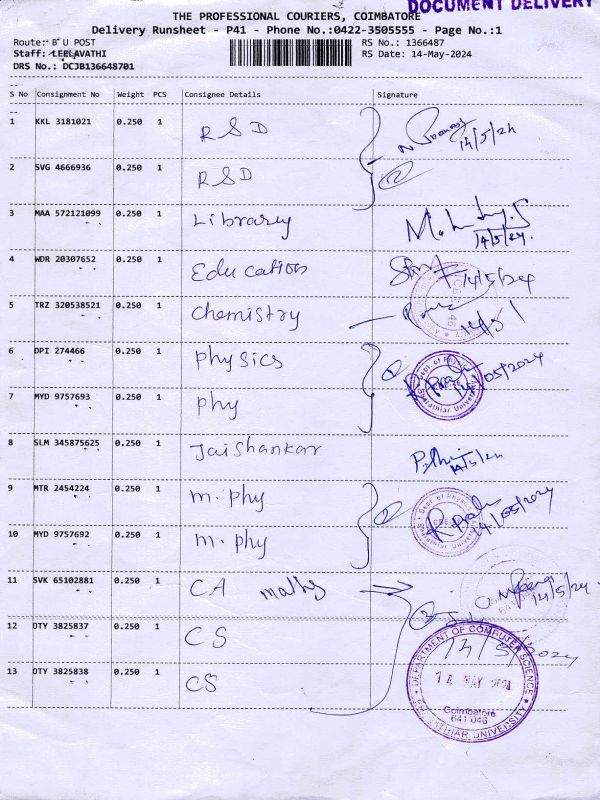 DOCUMENT DELIVERY
THE PROFESSIONAL COURIERS, COIMBATORE
Delivery Runsheet - P41 - Phone No.:0422-3505555 - Page No.:1
Route: B U POST
RS No.: 1366487
Staff: LEELAVATHI
RS Date: 14-May-2024
DRS No.: DCJB136648701
S No Consignment No Weight PCS Consignee Details Signature
1 KKL 3181021 0.250 1 RSD 14/5/24
2 SVG 4666936 0.250 1 RSD 2
3 MAA 572121099 0.250 1 Library 14/5/24.
4 WDR 20307652 0.250 1 Education 14/5/24
5 TRZ 320538521 0.250 1 Chemistry 14/5
6 DPI 274466 0.250 1 physics 2 14/05/2024
7 MYD 9757693 0.250 1 phy
8 SLM 345875625 0.250 1 Jaishankar 14/5/24
9 MTR 2454224 0.250 1 m. phy 2 14/05/2024
10 MYD 9757692 0.250 1 m. phy
11 SVK 65102881 0.250 1 CA maths 14/5/24
12 DTY 3825837 0.250 1 CS 14/5/2024
13 DTY 3825838 0.250 1 CS
DEPARTMENT OF COMPUTER SCIENCE
14 MAY 2024
Coimbatore
641 046
BHARATHIAR UNIVERSITY